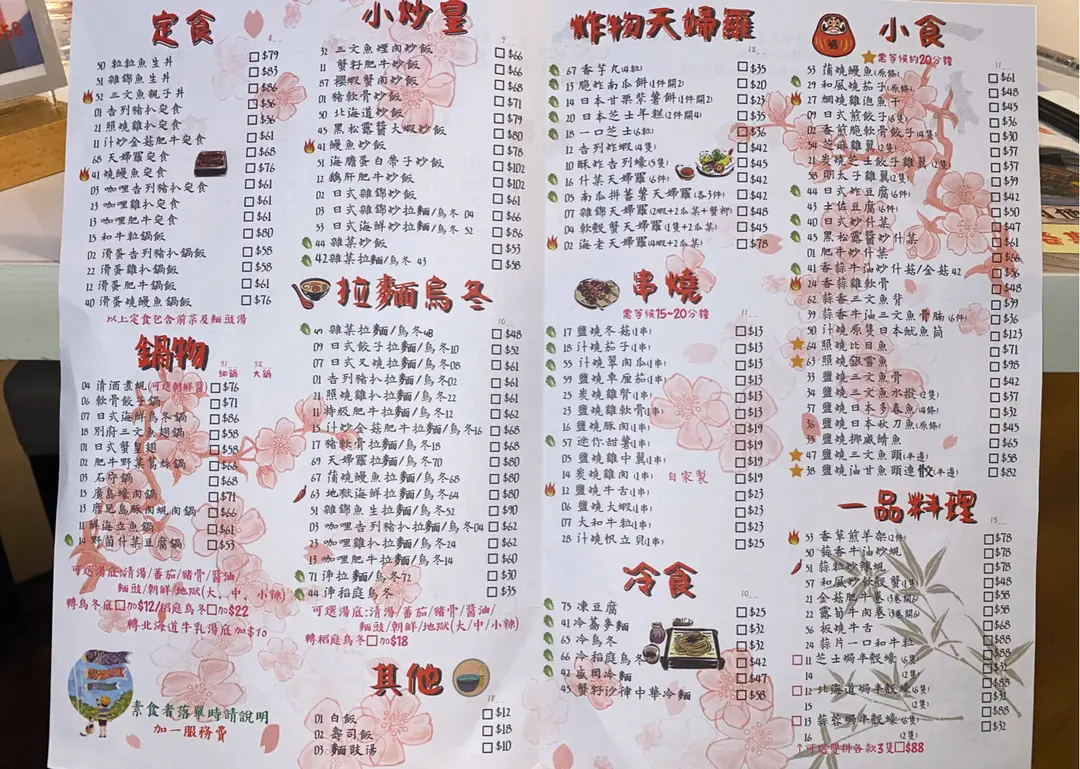 定食
50 粒粒魚生丼 $79
51 雜錦魚生丼 $83
52 三文魚親子丼 $86
01 吉列豬扒定食 $56
21 照燒雞扒定食 $56
11 汁炒金菇肥牛定食 $61
68 天婦羅定食 $68
41 燒鰻魚定食 $76
03 咖哩吉列豬扒定食 $61
23 咖哩雞扒定食 $61
13 咖哩肥牛定食 $61
15 和牛粒鍋飯 $80
02 滑蛋吉列豬扒鍋飯 $58
22 滑蛋雞扒鍋飯 $58
12 滑蛋肥牛鍋飯 $61
40 滑蛋燒鰻魚鍋飯 $76
以上定食包含前菜及麵豉湯
鍋物
31 細鍋 32 大鍋
04 清酒煮蜆(可選朝鮮醬) $76
06 軟骨餃子鍋 $71
07 日式海鮮烏冬鍋 $86
18 別府三文魚翅鍋 $58
01 日式蟹皇翅 $58
02 肥牛野菜翡絲鍋 $66
03 石守鍋 $68
15 廣島蠔肉鍋 $71
13 鹿兒島豚肉蜆肉鍋 $66
11 鮮海立魚鍋 $61
14 野茵什菜豆腐鍋 $53
可選湯底:清湯/蕃茄/豬骨/醬油/
麵豉/朝鮮/地獄(大、中、小辣)
轉烏冬底加$12/稻庭烏冬加$22
轉北海道牛乳湯底加$10
素食者落單時請說明
加一服務費
小炒皇
9
52 三文魚裡肉炒飯 $66
11 蟹籽肥牛炒飯 $66
87 櫻蝦蟹肉炒飯 $68
01 豬軟骨炒飯 $71
50 北海道炒飯 $79
45 黑松露醬大蝦炒飯 $80
41 鰻魚炒飯 $78
51 海膽蛋白帶子炒飯 $102
12 鵝肝肥牛炒飯 $102
02 日式雜錦炒飯 $61
03 日式雜錦炒拉麵/烏冬 04 $66
53 日式海鮮炒拉麵/烏冬 52 $86
44 雜菜炒飯 $53
42 雜菜拉麵/烏冬 43 $58
拉麵烏冬
雜菜拉麵/烏冬48 $48
09 日式餃子拉麵/烏冬10 $52
07 日式叉燒拉麵/烏冬08 $61
01 吉列豬扒拉麵/烏冬02 $61
21 照燒雞扒拉麵/烏冬22 $61
11 特級肥牛拉麵/烏冬12 $62
15 汁炒金菇肥牛拉麵/烏冬16 $68
17 豬軟骨拉麵/烏冬18 $68
69 天婦羅拉麵/烏冬70 $80
67 蒲燒鰻魚拉麵/烏冬68 $80
63 地獄海鮮拉麵/烏冬64 $80
51 雜錦魚生拉麵/烏冬52 $90
03 咖哩吉列豬扒拉麵/烏冬04 $62
23 咖哩雞扒拉麵/烏冬24 $62
13 咖哩肥牛拉麵/烏冬14 $60
71 淨拉麵/烏冬72 $30
44 淨稻庭烏冬 $35
可選湯底:清湯/蕃茄/豬骨/醬油/
麵豉/朝鮮/地獄(大/中/小辣)
轉稻庭烏冬加$18
其他
01 白飯 $12
02 壽司飯 $18
03 麵豉湯 $10
炸物天婦羅
12
67 香芋丸(4粒) $35
13 脆炸南瓜餅(1件開2) $20
14 日本甘栗紫薯餅(1件開2) $23
20 日本芝士年糕(2件開4) $35
18 一口芝士(6粒) $36
12 吉列炸蝦(4隻) $42
10 酥炸吉列蠔(5隻) $45
16 什菜天婦羅(6件) $42
05 南瓜拼蕃薯天婦羅(各3件) $42
07 雜錦天婦羅(2蝦+2瓜菜+蟹柳) $48
04 軟殼蟹天婦羅(1隻+2瓜菜) $45
02 海老天婦羅(4蝦+2瓜菜) $78
串燒
需等候15~20分鐘
11
17 鹽燒冬菇(1串) $13
18 汁燒茄子(1串) $13
55 汁燒翠肉瓜(1串) $13
59 鹽燒車厘茄(1串) $13
25 炭燒雞腎(1串) $13
23 鹽燒雞軟骨(1串) $13
16 鹽燒豚肉(1串) $19
57 迷你甜薯(1串) $19
15 鹽燒雞中翼(1串) $19
14 炭燒雞肉(1串) 自家製 $19
12 鹽燒牛舌(1串) $23
06 鹽燒大蝦(1串) $23
07 大和牛粒(1串) $23
28 汁燒帆立貝(1串) $25
冷食
10
75 凍豆腐 $25
41 冷蕎麥麵 $32
65 冷烏冬 $32
66 冷稻庭烏冬 $42
42 盛岡冷麵 $47
45 蟹籽沙律中華冷麵 $58
小食
需等候約20分鐘
11
53 蒲燒鰻魚(原條) $61
29 和風燒茄子(原條) $48
17 胡椒雞泡魚干 $45
09 日式煎餃子(6件) $31
02 香煎脆軟骨餃子(4隻) $37
54 芝麻雞翼(2隻) $37
21 炭燒芝士餃子雞翼(2隻) $37
58 明太子雞翼(2隻) $37
44 日式炸豆腐(6件) $42
43 土佐豆腐(6件) $42
40 日式炒什菜 $50
45 黑松露醬炒什菜 $47
01 肥牛炒什菜 $61
41 香蒜牛油炒什菇/金菇 42 $66
24 香蒜雞軟骨 $56
62 蒜香三文魚背 $48
39 蒜香牛油三文魚骨腩(6件) $39
50 汁燒原隻日本魷魚筒 $36
64 照燒比目魚 $123
63 照燒銀雪魚 $71
33 鹽燒三文魚骨 $98
34 鹽燒三文魚水撥(2件) $42
37 鹽燒日本多春魚(4條) $37
36 鹽燒日本秋刀魚(原條) $32
35 鹽燒挪威鯖魚 $45
47 鹽燒三文魚頭(半邊) $65
38 鹽燒油甘魚頭連骹(半邊) $58
$82
一品料理
15
53 香草煎羊架(2件) $78
50 蒜香牛油炒蜆 $78
51 蒜粒炒辣蜆 $78
57 和風炒軟殼蟹(1隻) $48
21 金菇肥牛卷(3卷開6) $58
22 露筍牛肉卷(3卷開6) $58
56 板燒牛舌 $68
24 蒜片一口和牛粒 $65
11 芝士焗半殼蠔(6隻) $88
14 (2隻) $32
12 北海道焗半殼蠔(6隻) $88
15 (2隻) $32
13 蒜蓉焗半殼蠔(6隻) $88
16 (2隻) $32
↑可選雙拼各款3隻$88